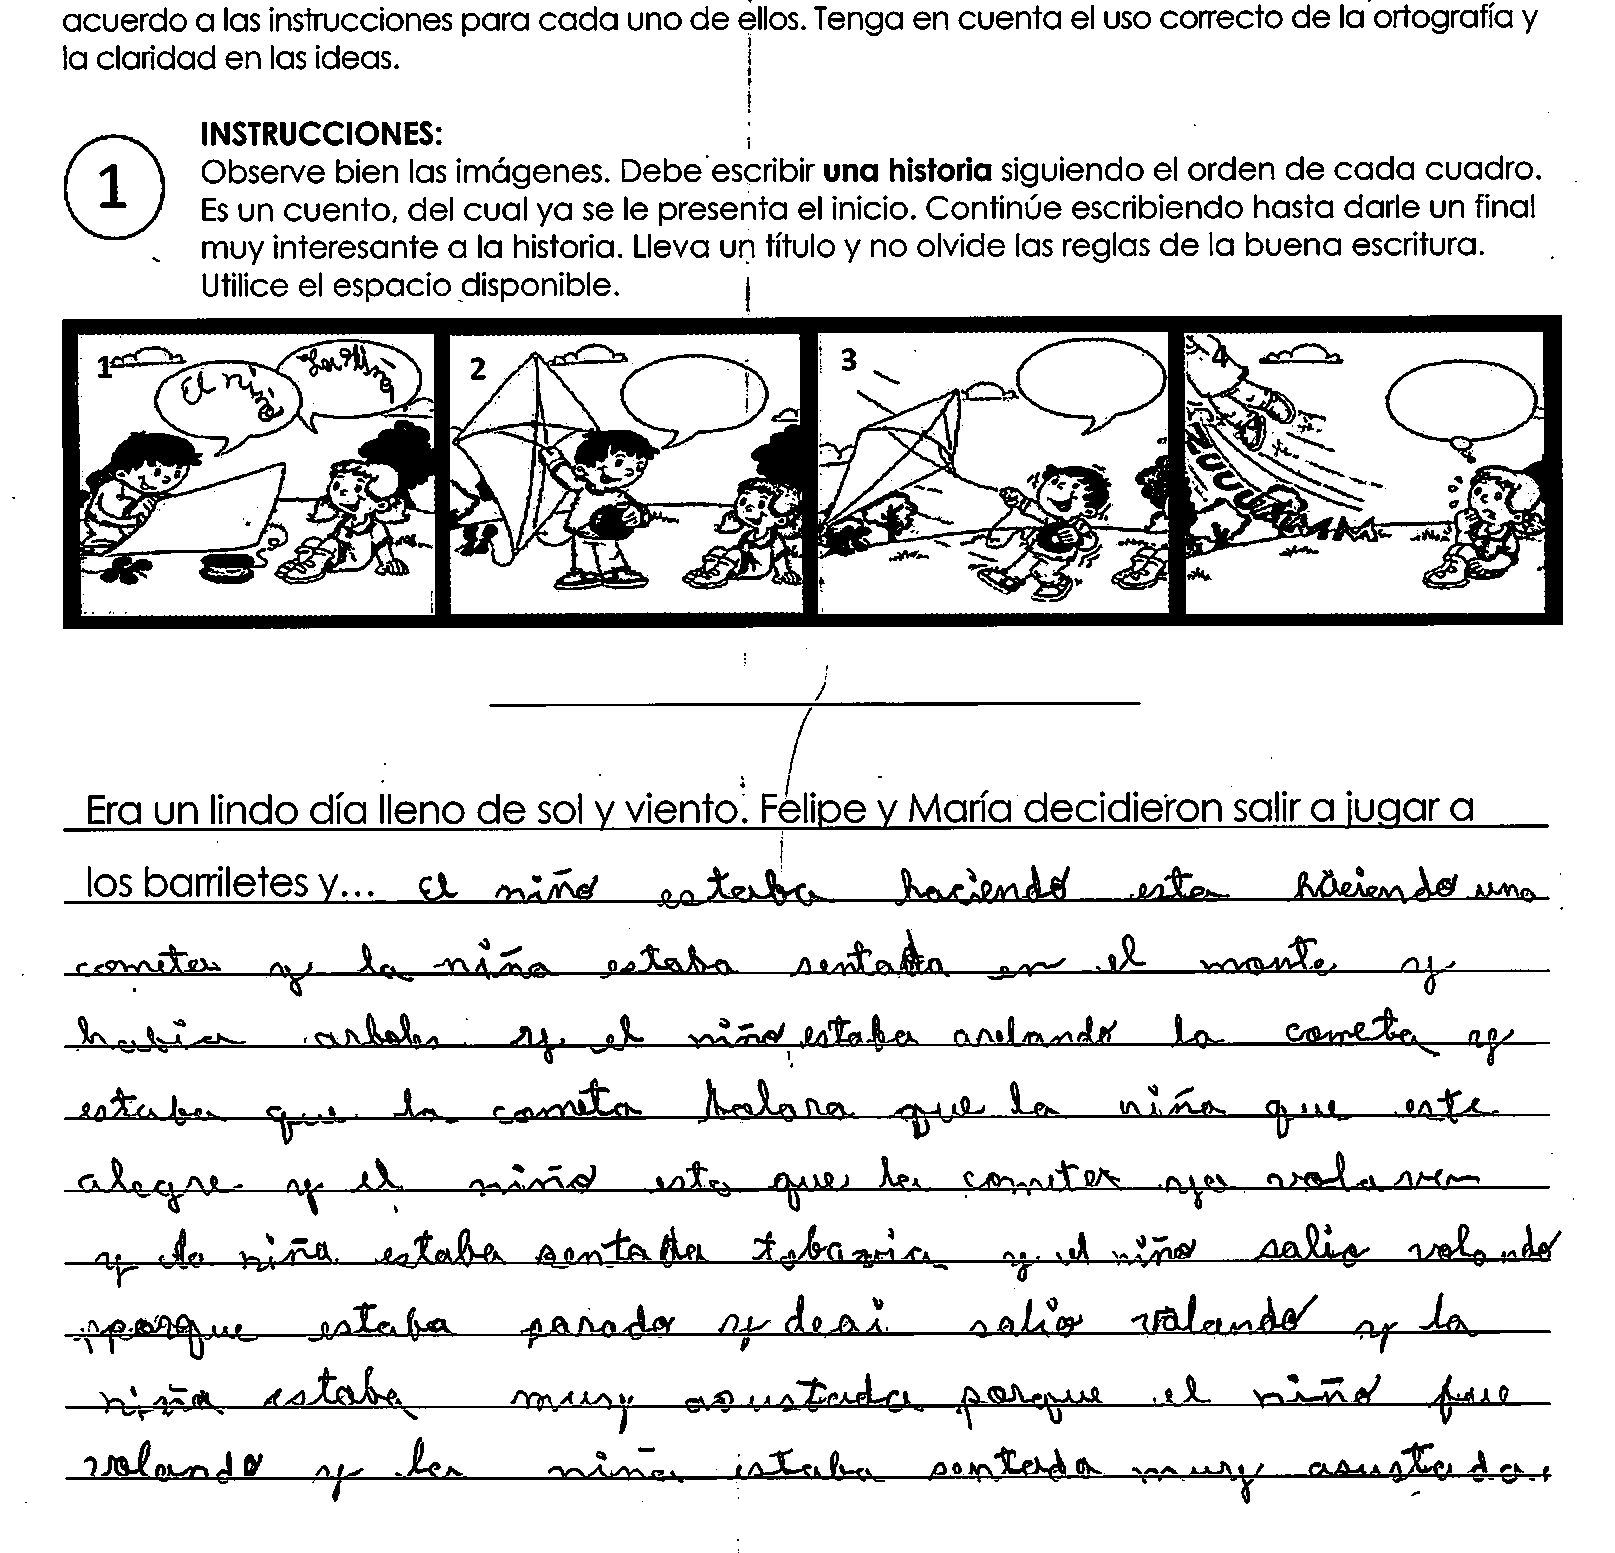 acuerdo a las instrucciones para cada uno de ellos. Tenga en cuenta el uso correcto de la ortografía y
la claridad en las ideas.
1
INSTRUCCIONES:
Observe bien las imágenes. Debe escribir una historia siguiendo el orden de cada cuadro.
Es un cuento, del cual ya se le presenta el inicio. Continúe escribiendo hasta darle un final
muy interesante a la historia. Lleva un título y no olvide las reglas de la buena escritura.
Utilice el espacio disponible.
1 2 3 4
El niño
La Niña
ZUUUUMMM
Era un lindo día lleno de sol y viento. Felipe y María decidieron salir a jugar a
los barriletes y... El niño estaba haciendo esta haciendo una
cometa y la niña estaba sentada en el monte y
habia arboles y el niño estaba la cometa y
estaba que la cometa que la niña que este
alegre y el niño esta que la cometa ya
y la niña estaba sentada y el niño salio volando
porque estaba parado y deai salio volando y la
niña estaba muy asustada porque el niño fue
volando y la niña estaba sentada muy asustada.